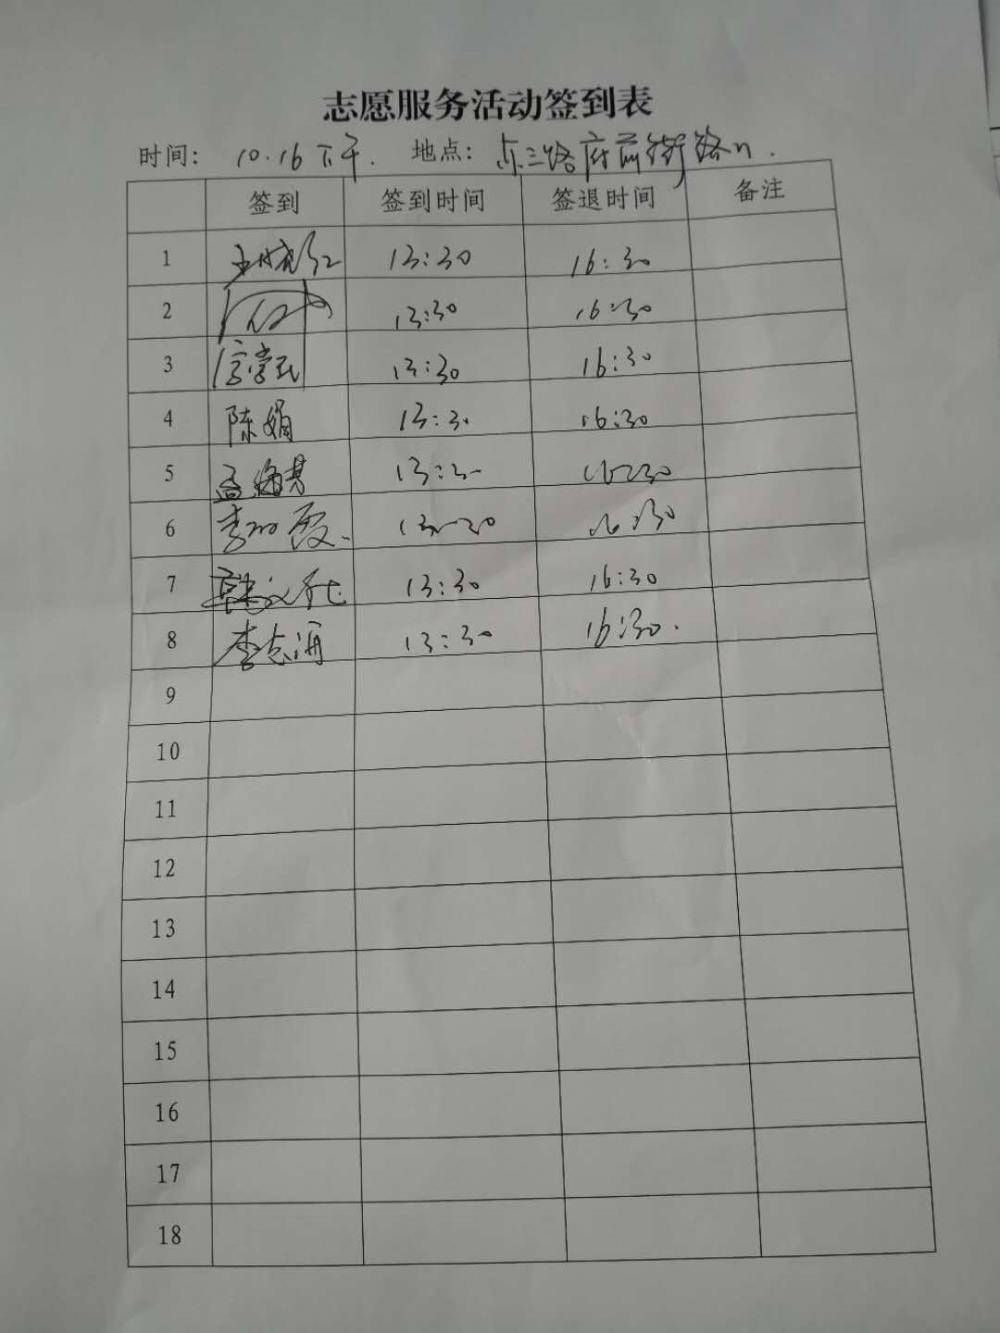 志愿服务活动签到表
时间: 10.16下午. 地点: 东三路府前街路口.
签到 签到时间 签退时间 备注
1 王晓红 13:30 16:30
2 13:30 16:30
3 13:30 16:30
4 陈娟 13:30 16:30
5 孟海燕 13:30 16:30
6 李 霞 13:30 16:30
7 13:30 16:30
8 李志海 13:30 16:30.
9
10
11
12
13
14
15
16
17
18